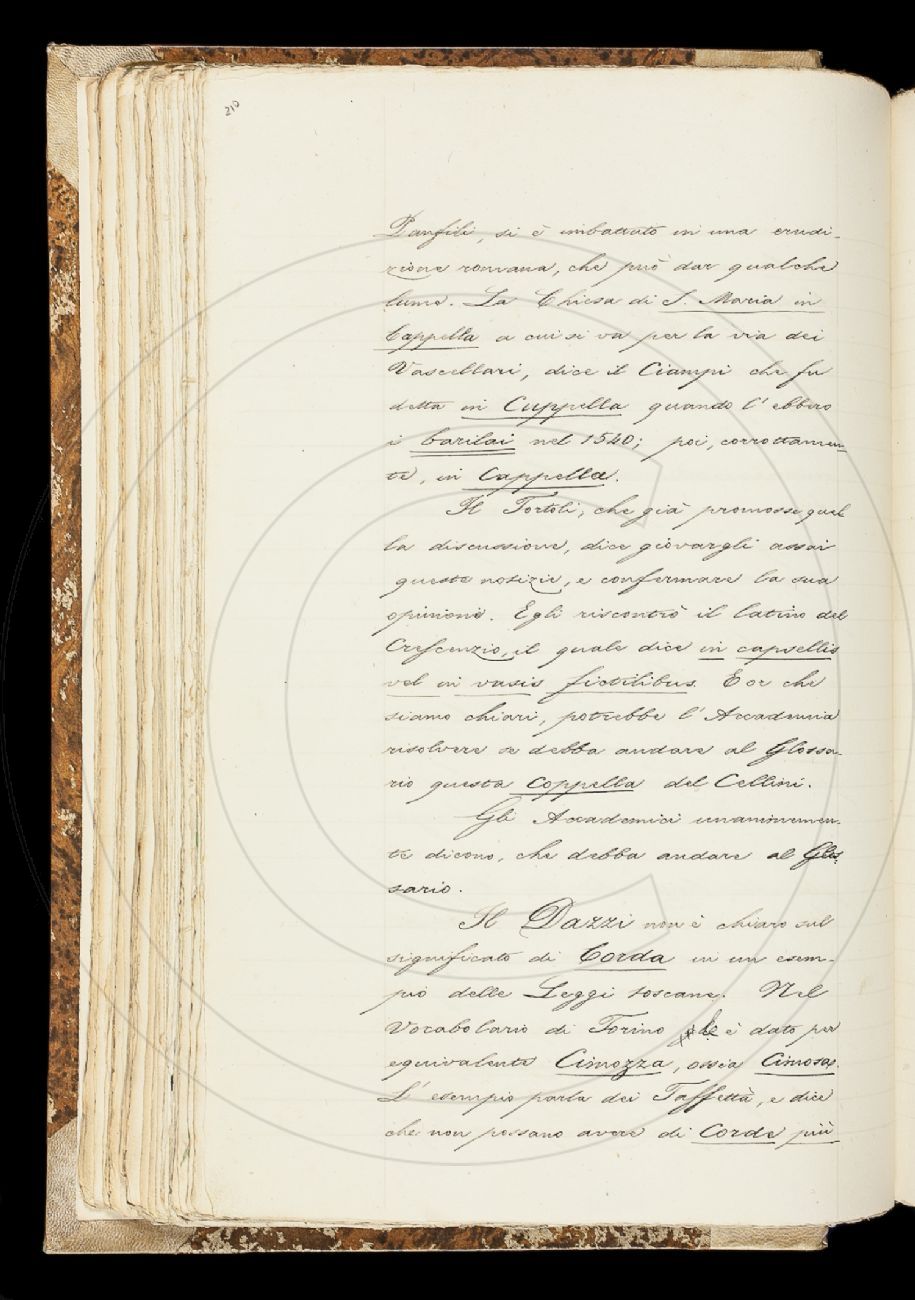 210
Panfili, si è imbattuto in una erudi-
zione romana, che può dar qualche
lume. La Chiesa di S. Maria in
Cappella a cui si va per la via dei
Vascellari, dice il Ciampi che fu
detta in Cuppella quando l' ebbero
i barilai nel 1540; poi, corrottamen-
te, in Cappella.
Il Tortoli, che già promosse quel-
la discussione, dice giovargli assai
queste notizie, e confermare la sua
opinione. Egli riscontrò il latino del
Crescenzio, il quale dice in capsellis
vel in vasis fictilibus. E or che
siamo chiari, potrebbe l' Accademia
risolvere se debba andare al Glossa-
rio questa coppella del Cellini.
Gli Accademici unanimemen-
te dicono, che debba andare al Glos-
sario.
Il Dazzi non è chiaro sul
significato di Corda in un esem-
pio delle Leggi toscane. Nel
Vocabolario di Torino è dato per
equivalente Cimozza, ossia Cimosa.
L' esempio parla dei Taffettà, e dice
che non possano avere di Corde più